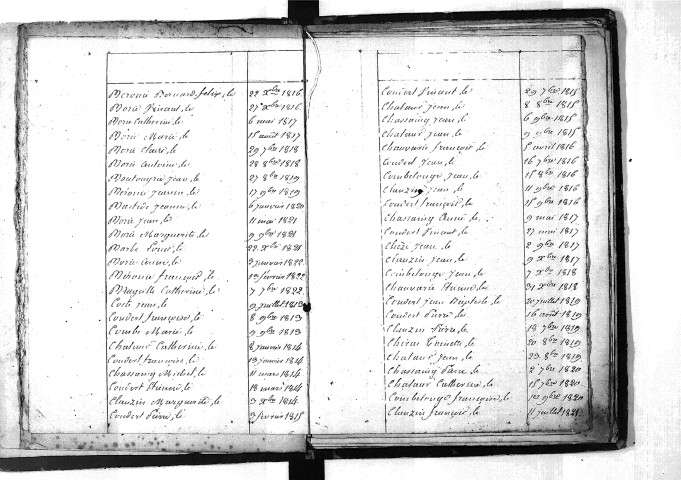 Béronie Bernard felix, le 22 Xbre 1816
Borie Vincent, le 27 Xbre 1816
Borie Catherine, le 6 mai 1817
Borie Marie, le 15 août 1817
Borie Claire, le 29 7bre 1818
Borie Antoine, le 28 8bre 1818
Jean, le 27 8bre 1819
le 17 9bre 1819
Jeanne, le 6 janvier 1820
Borie Jean, le 11 mai 1821
Borie Marguerite, le 9 9bre 1821
le 22 Xbre 1821
Borie le 3 janvier 1822
Béronie François, le 13 février 1822
Catherine, le 7 7bre 1822
Coste Jean, le 9 juillet 1813
Coudert françoise, le 8 9bre 1813
Combe Marie, le 9 9bre 1813
Catherine, le 8 janvier 1814
Coudert françoise, le 13 janvier 1814
Chassaing Michel, le 11 mars 1814
Coudert Etienne, le 18 mars 1814
Clauzin Marguerite, le 3 Xbre 1814
Coudert Pierre, le 3 février 1815
Coudert Vincent, le 29 7bre 1815
Chataur Jean, le 8 8bre 1815
Chassaing Jean, le 6 9bre 1815
Chataur Jean, le 9 9bre 1815
Chauvarie françois, le 5 avril 1816
Coudert Jean, le 16 7bre 1816
Combelonge Jean, le 15 8bre 1816
Clauzin Jean, le 11 9bre 1816
Coudert françois, le 15 9bre 1816
Chassaing le 9 mai 1817
Coudert Vincent, le 27 mai 1817
Chèze Jean, le 2 9bre 1817
Clauzin Jean, le 9 Xbre 1817
Combelonge Jean, le 7 Xbre 1818
Chauvarie Etienne, le 31 Xbre 1818
Coudert Jean Baptiste, le 20 juillet 1819
Coudert Pierre, le 16 août 1819
Clauzin Pierre, le 18 7bre 1819
Toinette, le 20 8bre 1819
Chataur Jean, le 23 8bre 1819
Chassaing le 2 7bre 1820
Chataur Catherine, le 15 7bre 1820
Combelonge françoise, le 9bre 1820
Clauzin françois, le 11 juillet 1821